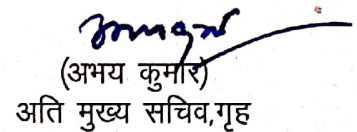 (अभय कुमार)
अति मुख्य सचिव,गृह